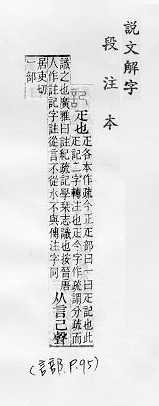 說文解字
段注本
記
疋也
疋各本作疏今正疋部曰一曰疋記也此
疋記二字轉注也疋今字作疏謂分疏而
識之也廣雅曰註紀疏記學栞志識也按晉唐
人作註記字註從言不從水不與傳注字同
从言己聲
居吏切
一部
(言部.P.95)